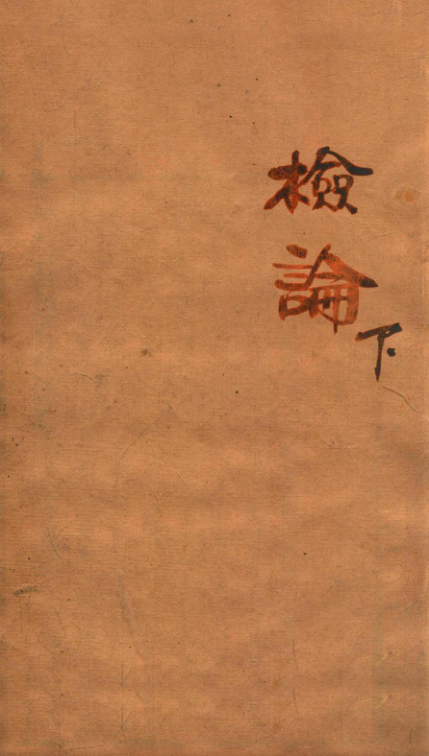 檢論
下